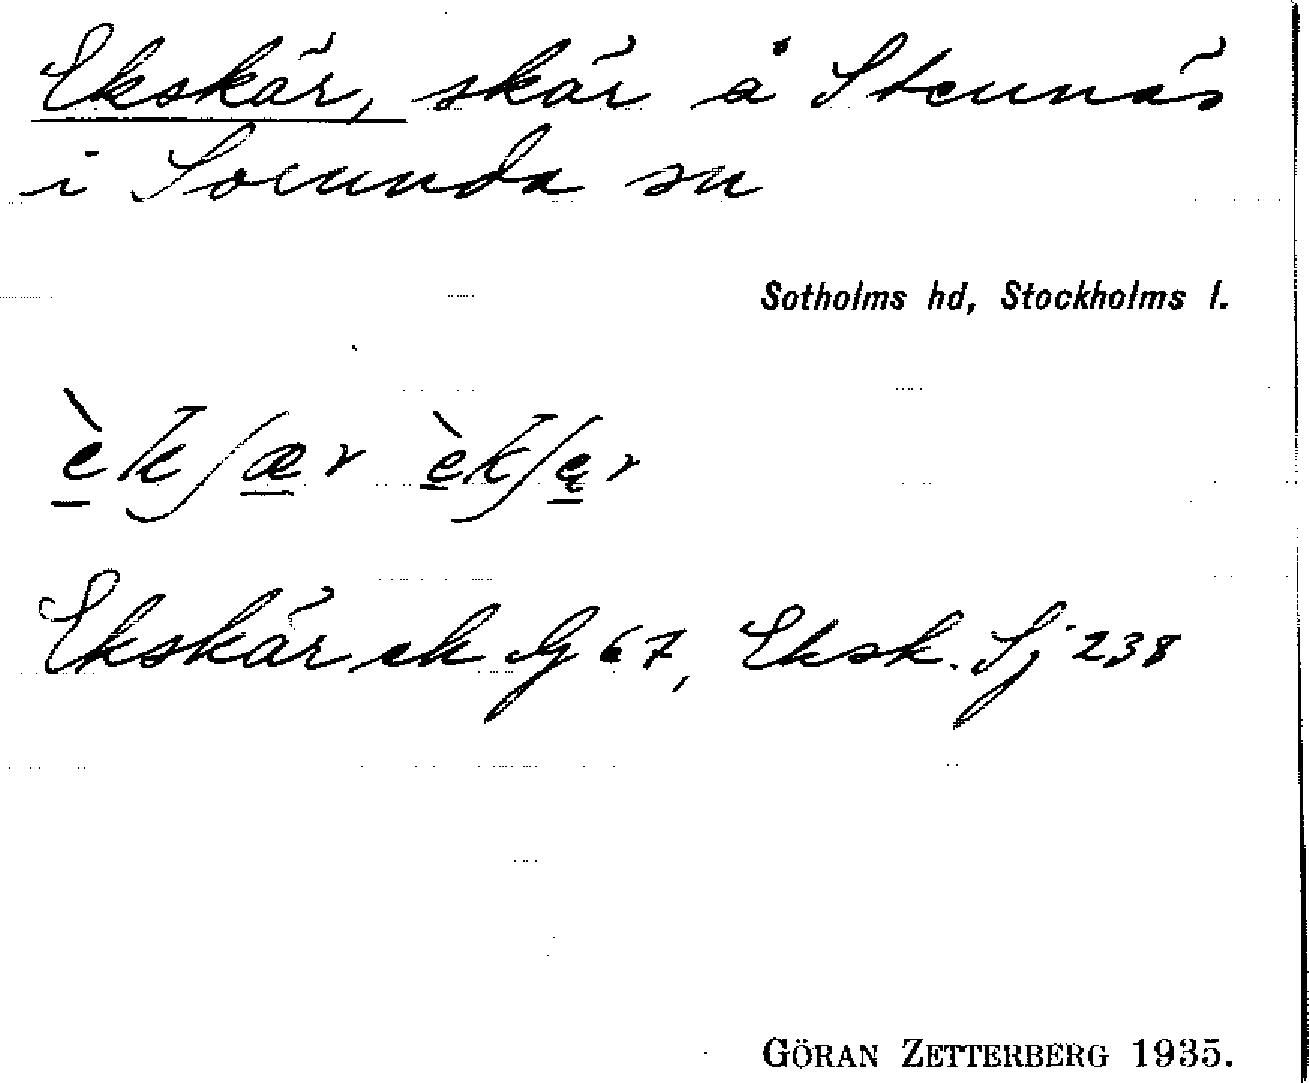 Ekskär, skär å Stennäs
i Sorunda sn
Sotholms hd, Stockholms l.
Ekskär ek 67, Eksk. Sj 238
GÖRAN ZETTERBERG 1935.